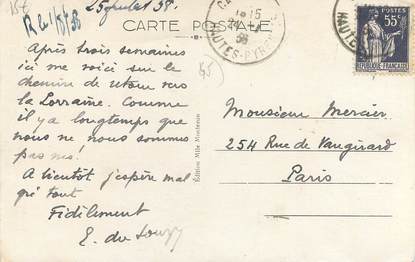 25 juillet 38.
CARTE POSTALE
Après trois semaines
ici me voici sur le
chemin de retour vers
la Lorraine. Comme
il y a longtemps que
nous ne nous sommes
pas vus!
A bientôt j'espère mal
gré tout
Fidèlement
E. du
Édition Mlle
HAUTES-PYRÉNÉES
38
POSTES
55c
RÉPUBLIQUE FRANÇAISE
65
Monsieur Mercier
254 Rue de Vaugirard
Paris